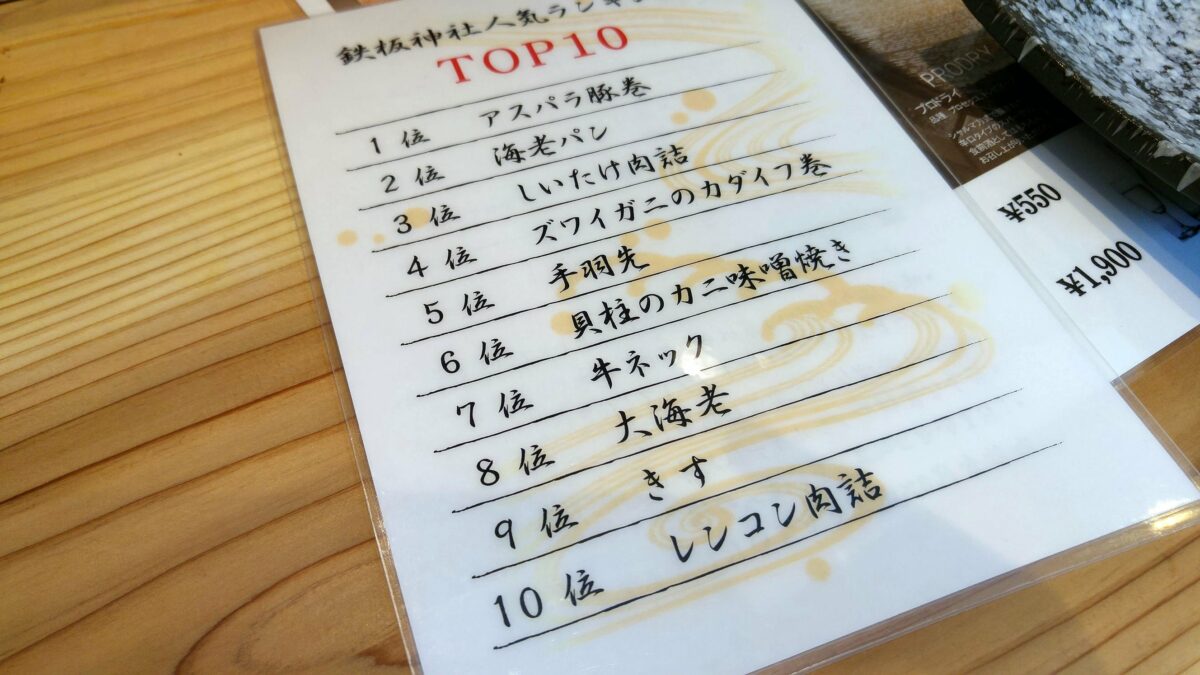 鉄板神社人気ランキング
TOP10
1位 アスパラ豚巻
2位 海老パン
3位 しいたけ肉詰
4位 ズワイガニのカダイフ巻
5位 手羽先
6位 貝柱のカニ味噌焼き
7位 牛ネック
8位 大海老
9位 きす
10位 レンコン肉詰
PRODRY
プロドライ
¥550
¥1,900